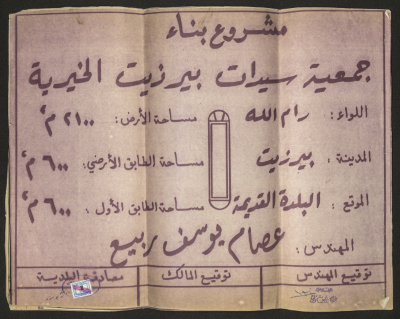 مشروع بناء
جمعية سيدات بيرزيت الخيرية
اللواء : رام الله
مساحة الأرض : ٢١٠٠ م٢
المدينة : بيرزيت
مساحة الطابق الأرضي : ٦٠٠ م٢
الموقع : البلدة القديمة
مساحة الطابق الأول : ٦٠٠ م٢
المهندس : عصام يوسف ربيع
توقيع المهندس
توقيع المالك
مصادقة البلدية